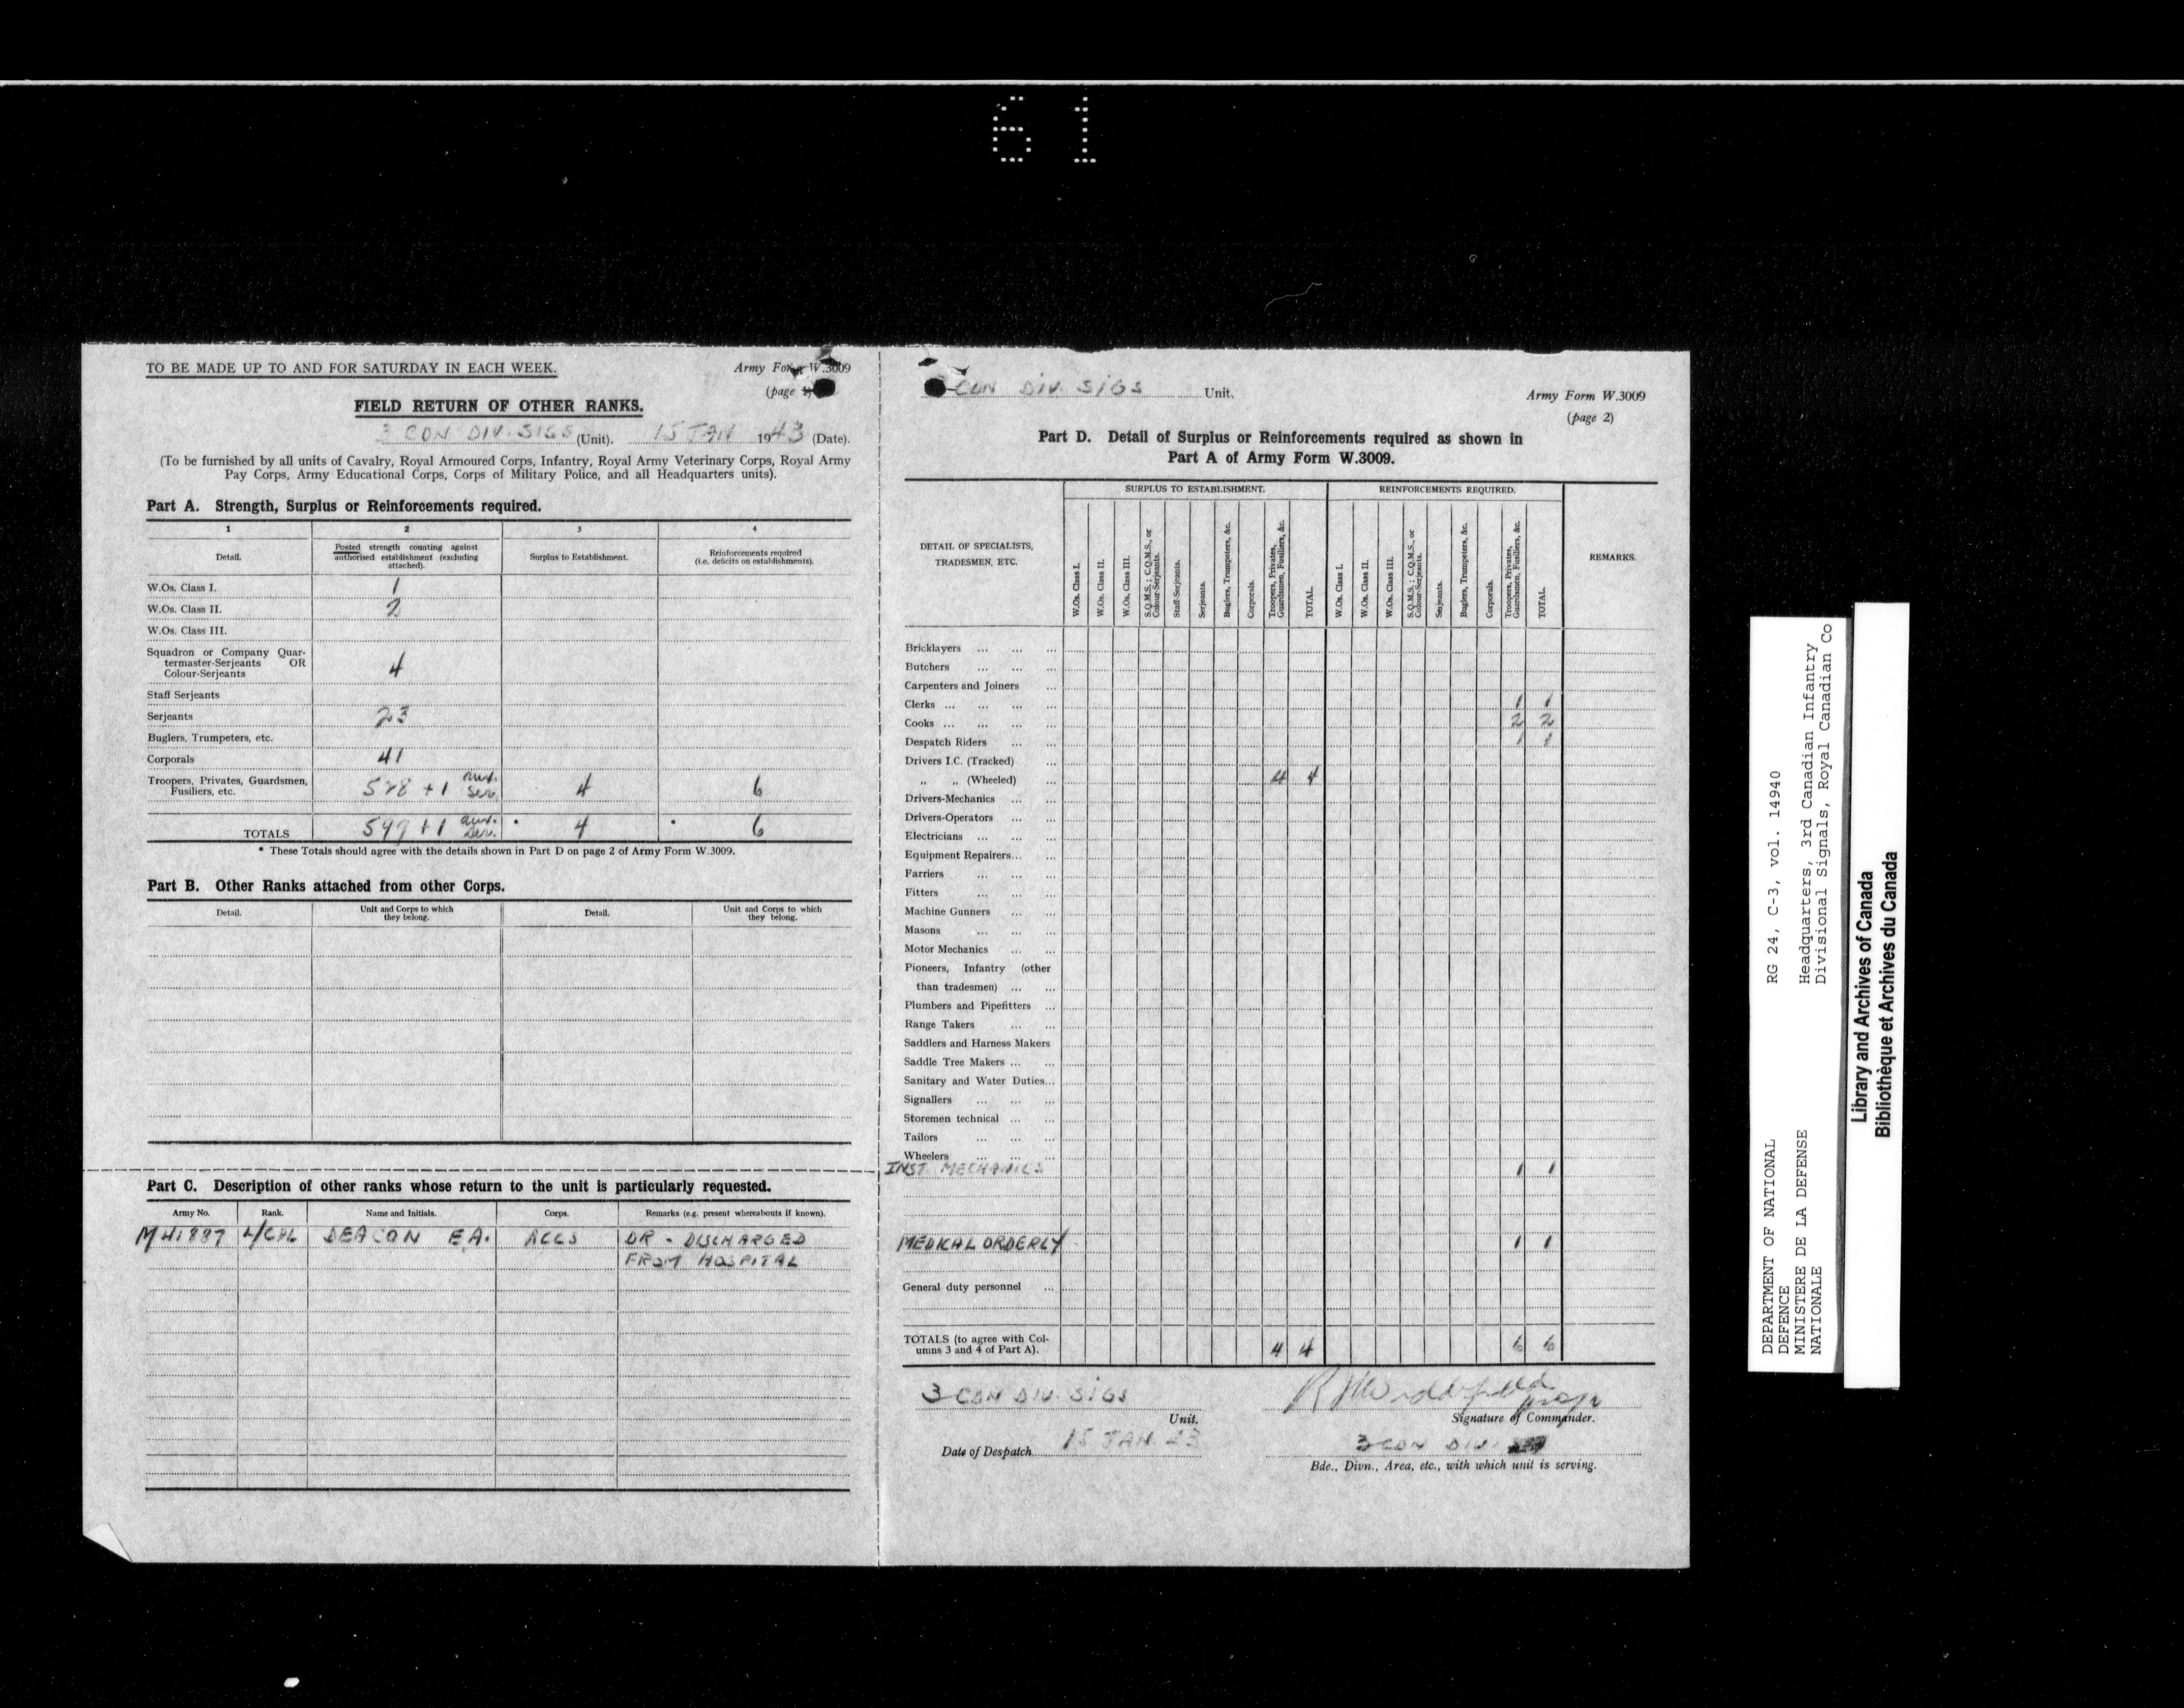 61
TO BE MADE UP TO AND FOR SATURDAY IN EACH WEEK.
Army Form W.3009
(page
FIELD RETURN OF OTHER RANKS.
3 CDN DIV. SIGS (Unit). 15 JAN 1943 (Date).
(To be furnished by all units of Cavalry, Royal Armoured Corps, Infantry, Royal Army Veterinary Corps, Royal Army
Pay Corps, Army Educational Corps, Corps of Military Police, and all Headquarters units).
Part A. Strength, Surplus or Reinforcements required.
1 2 3 4
Detail.
Posted strength counting against
authorised establishment (excluding
attached).
Surplus to Establishment.
Reinforcements required
(i.e. deficits on establishments).
W.Os. Class I. 1
W.Os. Class II. 2
W.Os. Class III.
Squadron or Company Quar-
termaster-Serjeants OR
Colour-Serjeants 4
Staff Serjeants
Serjeants 23
Buglers, Trumpeters, etc.
Corporals 41
Troopers, Privates, Guardsmen,
Fusiliers, etc. 528 + 1 4 6
TOTALS + 1 * 4 * 6
* These Totals should agree with the details shown in Part D on page 2 of Army Form W.3009.
Part B. Other Ranks attached from other Corps.
Detail.
Unit and Corps to which
they belong.
Detail.
Unit and Corps to which
they belong.
Part C. Description of other ranks whose return to the unit is particularly requested.
Army No. Rank. Name and Initials. Corps. Remarks (e.g. present whereabouts if known).
M41887 L/CPL DEACON E.A. RCCS DR - DISCHARGED
FROM HOSPITAL
CDN DIV. SIGS Unit.
Army Form W.3009
(page 2)
Part D. Detail of Surplus or Reinforcements required as shown in
Part A of Army Form W.3009.
DETAIL OF SPECIALISTS,
TRADESMEN, ETC.
SURPLUS TO ESTABLISHMENT.
W.Os. Class I.
W.Os. Class II.
W.Os. Class III.
S.Q.M.S.; C.Q.M.S., or
Colour-Serjeants.
Staff-Serjeants.
Serjeants.
Buglers, Trumpeters, &c.
Corporals.
Troopers, Privates,
Guardsmen, Fusiliers, &c.
TOTAL.
REINFORCEMENTS REQUIRED.
W.Os. Class I.
W.Os. Class II.
W.Os. Class III.
S.Q.M.S.; C.Q.M.S., or
Colour-Serjeants.
Serjeants.
Buglers, Trumpeters, &c.
Corporals.
Troopers, Privates,
Guardsmen, Fusiliers, &c.
TOTAL.
REMARKS.
Bricklayers ... ... ...
Butchers ... ... ...
Carpenters and Joiners ...
Clerks ... ... ... ... 1 1
Cooks ... ... ... ... 2 2
Despatch Riders ... ... 1 1
Drivers I.C. (Tracked) ...
„ „ (Wheeled) ... 4 4
Drivers-Mechanics ... ...
Drivers-Operators ... ...
Electricians ... ... ...
Equipment Repairers... ...
Farriers ... ... ...
Fitters ... ... ...
Machine Gunners ... ...
Masons ... ... ...
Motor Mechanics ... ...
Pioneers, Infantry (other
than tradesmen) ... ...
Plumbers and Pipefitters ...
Range Takers ... ...
Saddlers and Harness Makers
Saddle Tree Makers ... ...
Sanitary and Water Duties...
Signallers ... ... ...
Storemen technical ... ...
Tailors ... ... ...
Wheelers ... ... ...
INST. MECHANICS 1 1
MEDICAL ORDERLY 1 1
General duty personnel ...
TOTALS (to agree with Col-
umns 3 and 4 of Part A). 4 4 6 6
3 CDN DIV. SIGS
Unit.
Signature of Commander.
Date of Despatch 15 JAN 43
3 CDN DIV
Bde., Divn., Area, etc., with which unit is serving.
DEPARTMENT OF NATIONAL
DEFENCE
MINISTERE DE LA DEFENSE
NATIONALE
RG 24, C-3, vol. 14940
Headquarters, 3rd Canadian Infantry
Divisional Signals, Royal Canadian Co
Library and Archives of Canada
Bibliothèque et Archives du Canada